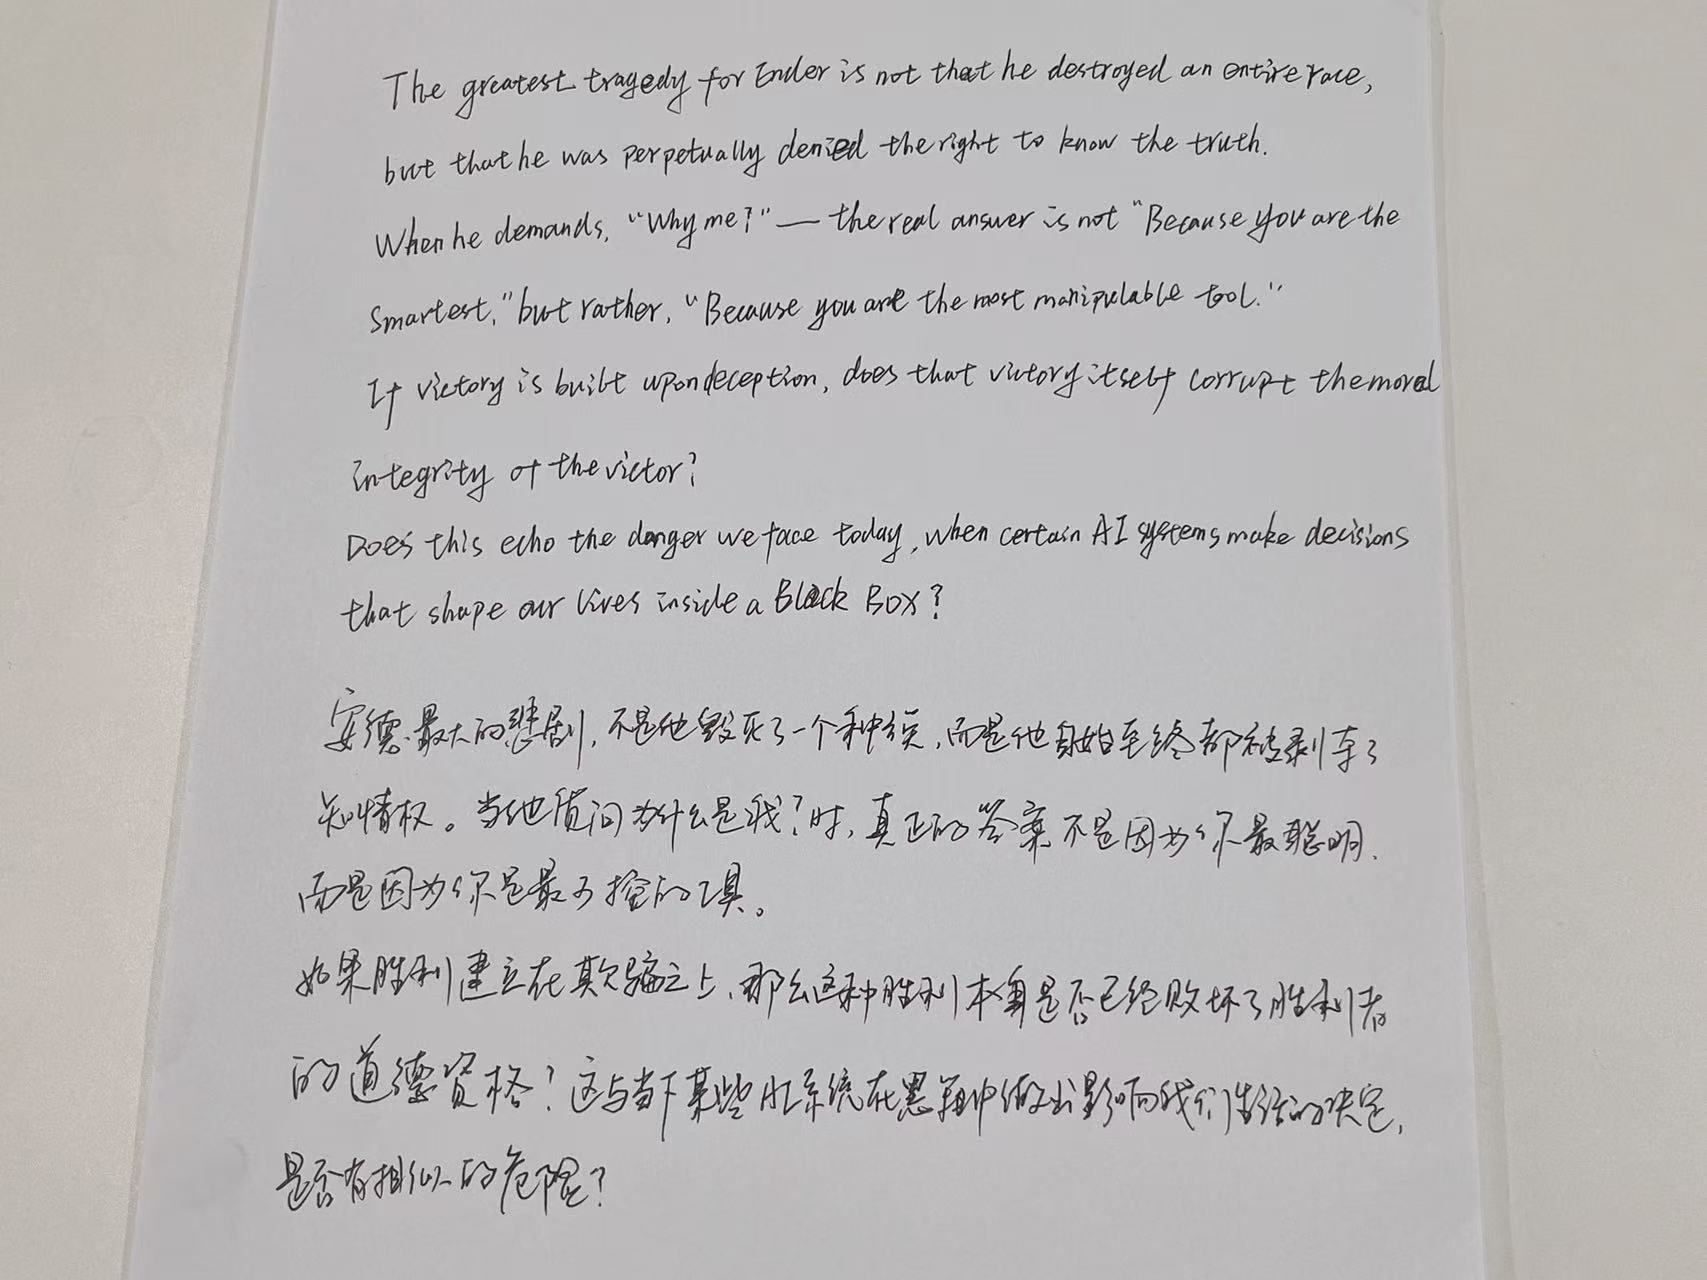 The greatest tragedy for Ender is not that he destroyed an entire race,
but that he was perpetually denied the right to know the truth.
When he demands, "Why me?" — the real answer is not "Because you are the
Smartest," but rather, "Because you are the most manipulable tool."
If victory is built upon deception, does that victory itself corrupt the moral
integrity of the victor?
Does this echo the danger we face today, when certain AI systems make decisions
that shape our lives inside a Black Box?
安德最大的悲剧，不是他毁灭了一个种族，而是他自始至终都被剥夺了
知情权。当他质问为什么是我？时，真正的答案不是因为你最聪明，
而是因为你是最可控的工具。
如果胜利建立在欺骗之上，那么这种胜利本身是否已经败坏了胜利者
的道德资格？这与当下某些AI系统在黑箱中做出影响我们生活的决定，
是否有相似的危险？